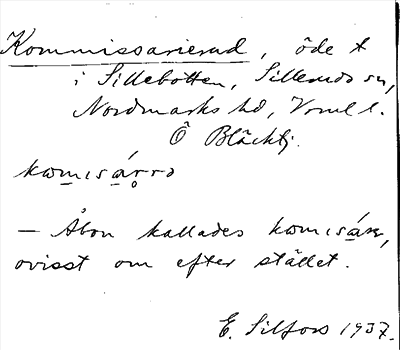 Kommissarierud, öde t
i Sillebotten, Silleruds sn,
Nordmarks hd, Vrml l.
Ö Bläckbj.
komısárrə
— Åbon kallades komısárn,
ovisst om efter stället.
E. Silfors 1937.